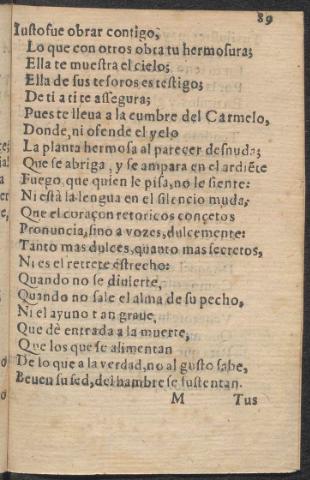 89
Iusto fue obrar contigo,
Lo que con otros obra tu hermosura;
Ella te muestra el cielo;
Ella de sus tesoros es testigo;
De ti a ti te assegura;
Pues te lleva a la cumbre del Carmelo,
Donde, ni ofende el yelo
La planta hermosa al parecer desnuda;
Que se abriga, y se ampara en el ardiẽte
Fuego, que quien le pisa, no le siente:
Ni està la lengua en el silencio muda,
Que el coraçon retoricos concetos
Pronuncia, sino a vozes, dulcemente:
Tanto mas dulces, quanto mas secretos,
Ni es el retrete estrecho:
Quando no se diuierte,
Quando no sale el alma de su pecho,
Ni el ayuno tan graue,
Que dè entrada a la muerte,
Que los que se alimentan
De lo que a la verdad, no al gusto sabe,
Beuen su sed, del hambre se sustentan.
M Tus